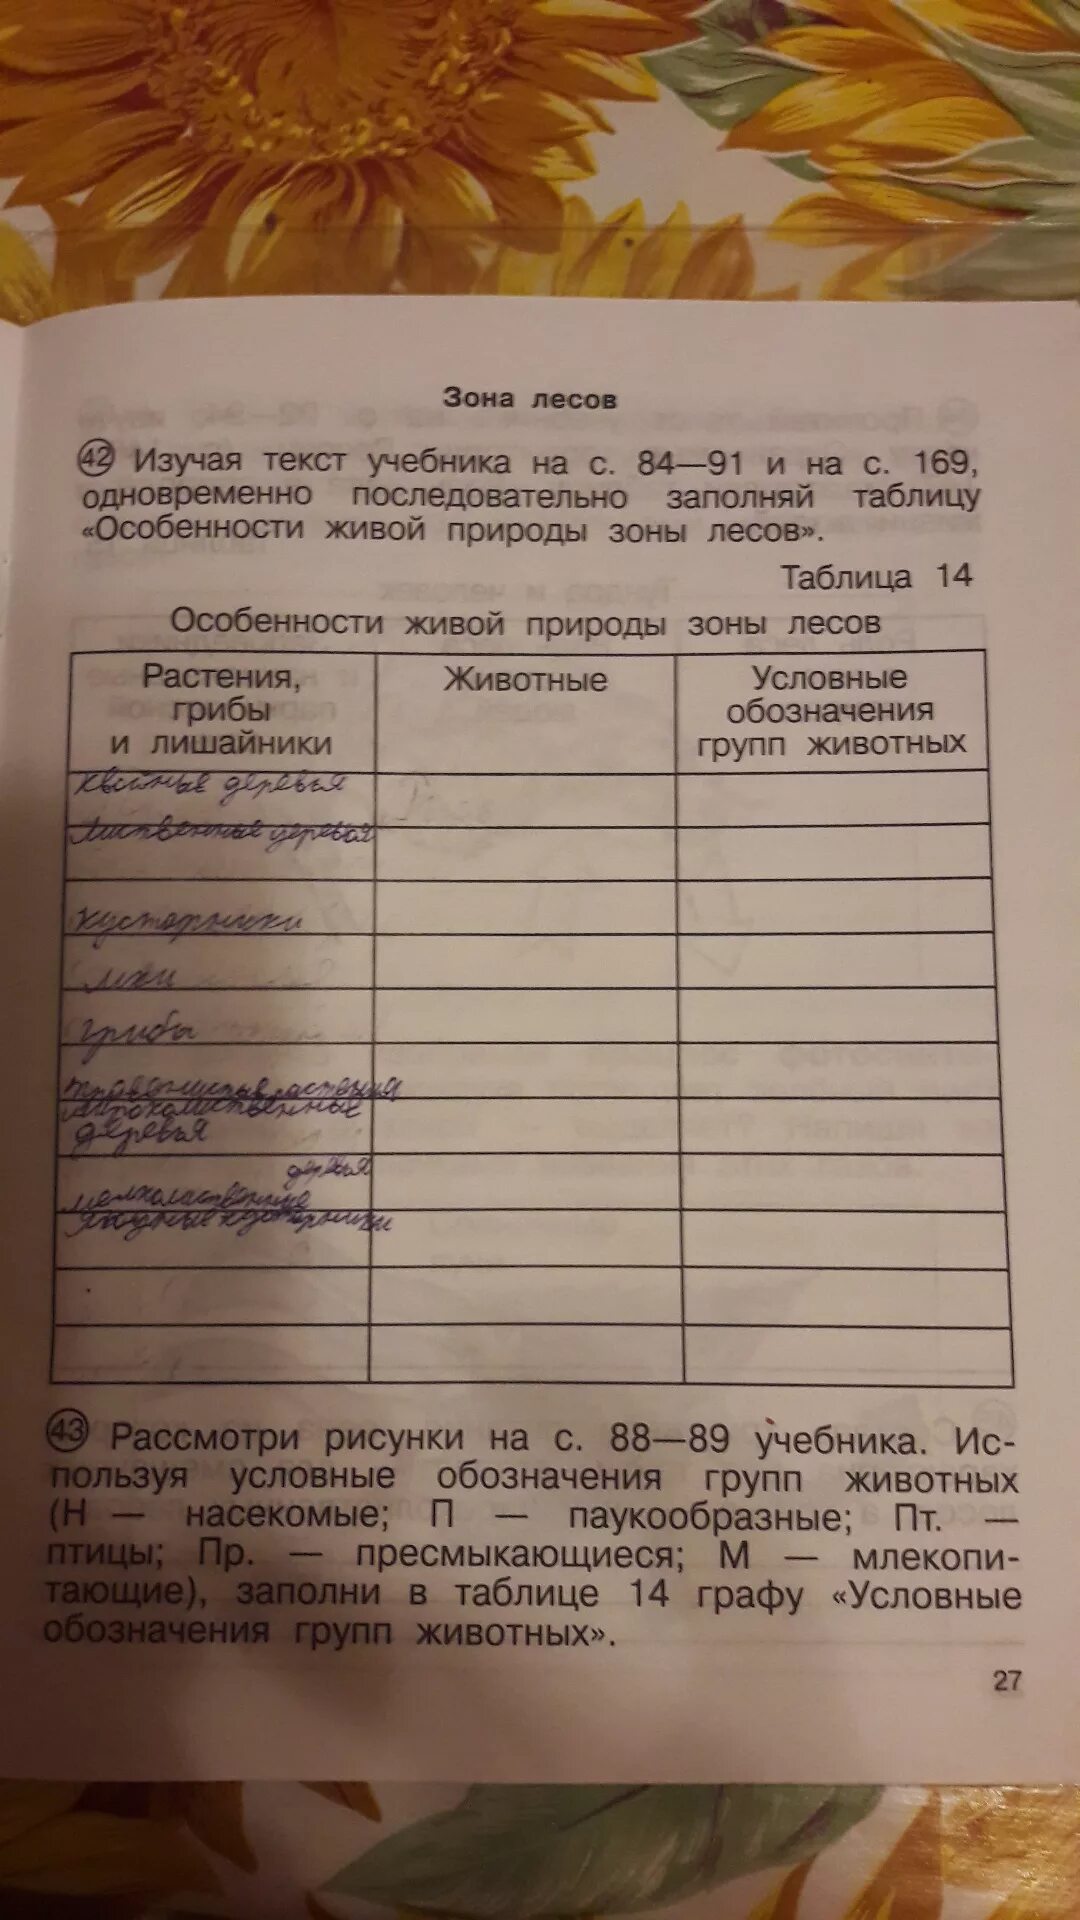 Зона лесов
42 Изучая текст учебника на с. 84—91 и на с. 169,
одновременно последовательно заполняй таблицу
«Особенности живой природы зоны лесов».
Таблица 14
Особенности живой природы зоны лесов
Растения,
грибы
и лишайники
Животные
Условные
обозначения
групп животных
хвойные деревья
лиственные деревья
кусторники
мхи
грибы
травянистые растения
широколиственные
деревья
деревья
мелколиственные
ягодные кусторники
43 Рассмотри рисунки на с. 88—89 учебника. Ис-
пользуя условные обозначения групп животных
(Н — насекомые; П — паукообразные; Пт. —
птицы; Пр. — пресмыкающиеся; М — млекопи-
тающие), заполни в таблице 14 графу «Условные
обозначения групп животных».
27